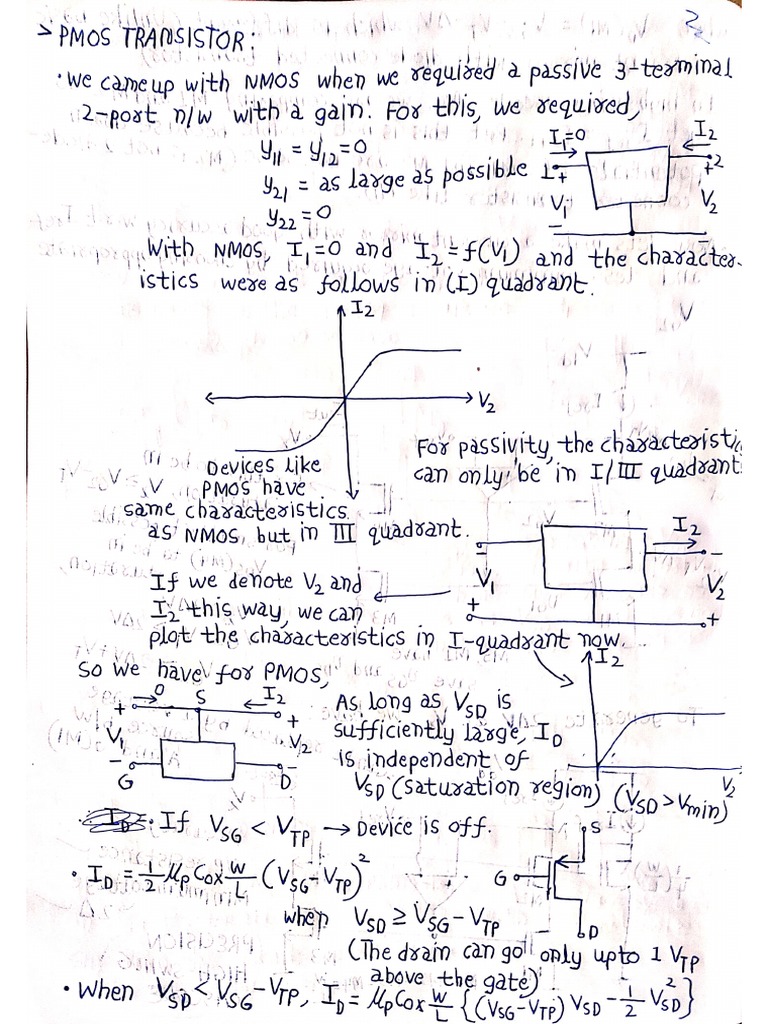 2
> PMOS TRANSISTOR:
• We came up with NMOS when we required a passive 3-terminal
2-port n/w with a gain. For this, we required,
y11 = y12 = 0
y21 = as large as possible
y22 = 0
I1=0
I2
1+
+2
V1
V2
−
−
With NMOS, I1=0 and I2=f(V1) and the character-
istics were as follows in (I) quadrant.
I2
V2
For passivity, the characteristic
can only be in I/III quadrant.
Devices like
PMOS have
same characteristics
as NMOS but in III quadrant.
I2
−
−
V1
V2
+
+
If we denote V2 and
I2 this way, we can
plot the characteristics in I-quadrant now.
So we have for PMOS,
I2
V2
0
S
I2
+
+
V1
V2
−
−
G
D
As long as VSD is
sufficiently large, ID
is independent of
VSD (saturation region) (VSD > Vmin)
• If VSG < VTP → Device is off.
• ID = 1/2 μp Cox W/L (VSG − VTP)²
when VSD ≥ VSG − VTP
S
G
D
(The drain can go only upto 1 VTP
above the gate)
• When VSD < VSG − VTP, ID = μp Cox W/L {(VSG − VTP) VSD − 1/2 VSD²}